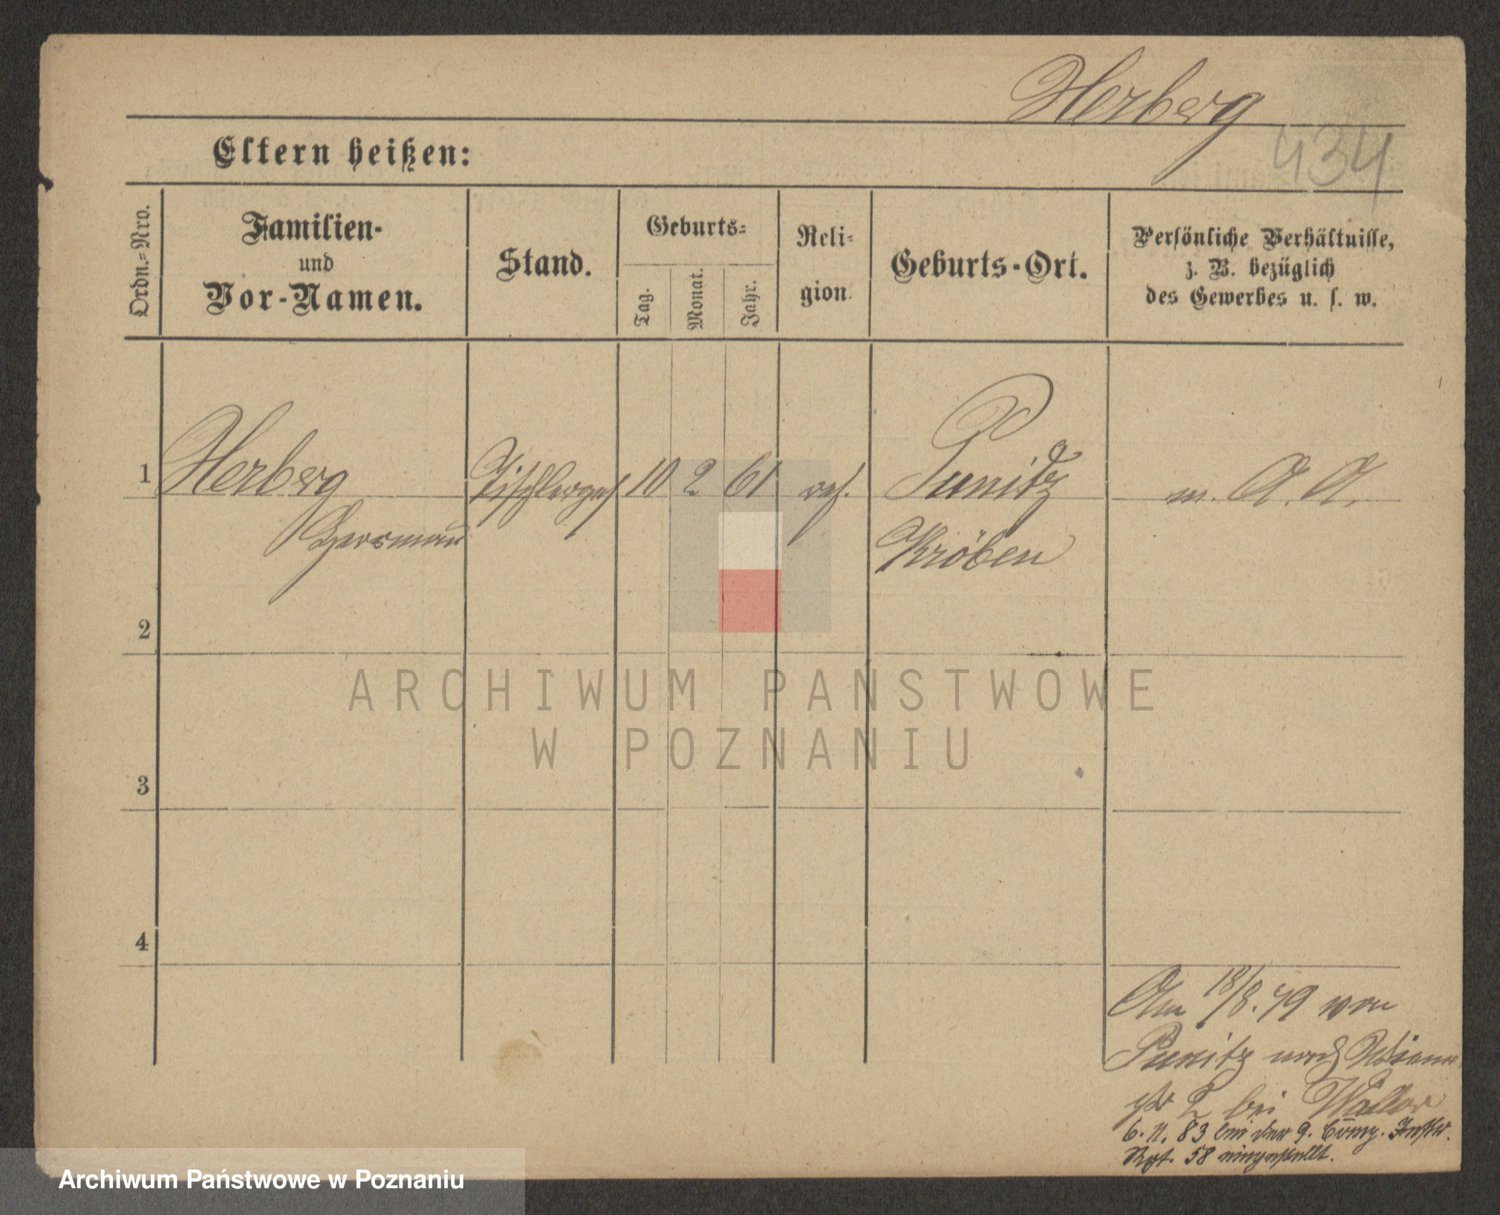 Herberg
434
Eltern heißen:
Ordn.=Nro.
Familien-
und
Vor-Namen.
Stand.
Geburts=
Tag.
Monat.
Jahr.
Reli-
gion.
Geburts-Ort.
Persönliche Verhältnisse,
z. B. bezüglich
des Gewerbes u. s. w.
1 Herberg Tischlerges 10 2 61 ref. Punitz m. A. A.
Herrmann Kröben
2
3
4
Am 18/8. 79 von
Punitz nach
2 bei
6. 11. 83 bei der 9. Comp. Inftr.
Rgt. 58 eingestellt.
ARCHIWUM PAŃSTWOWE
W POZNANIU
Archiwum Państwowe w Poznaniu